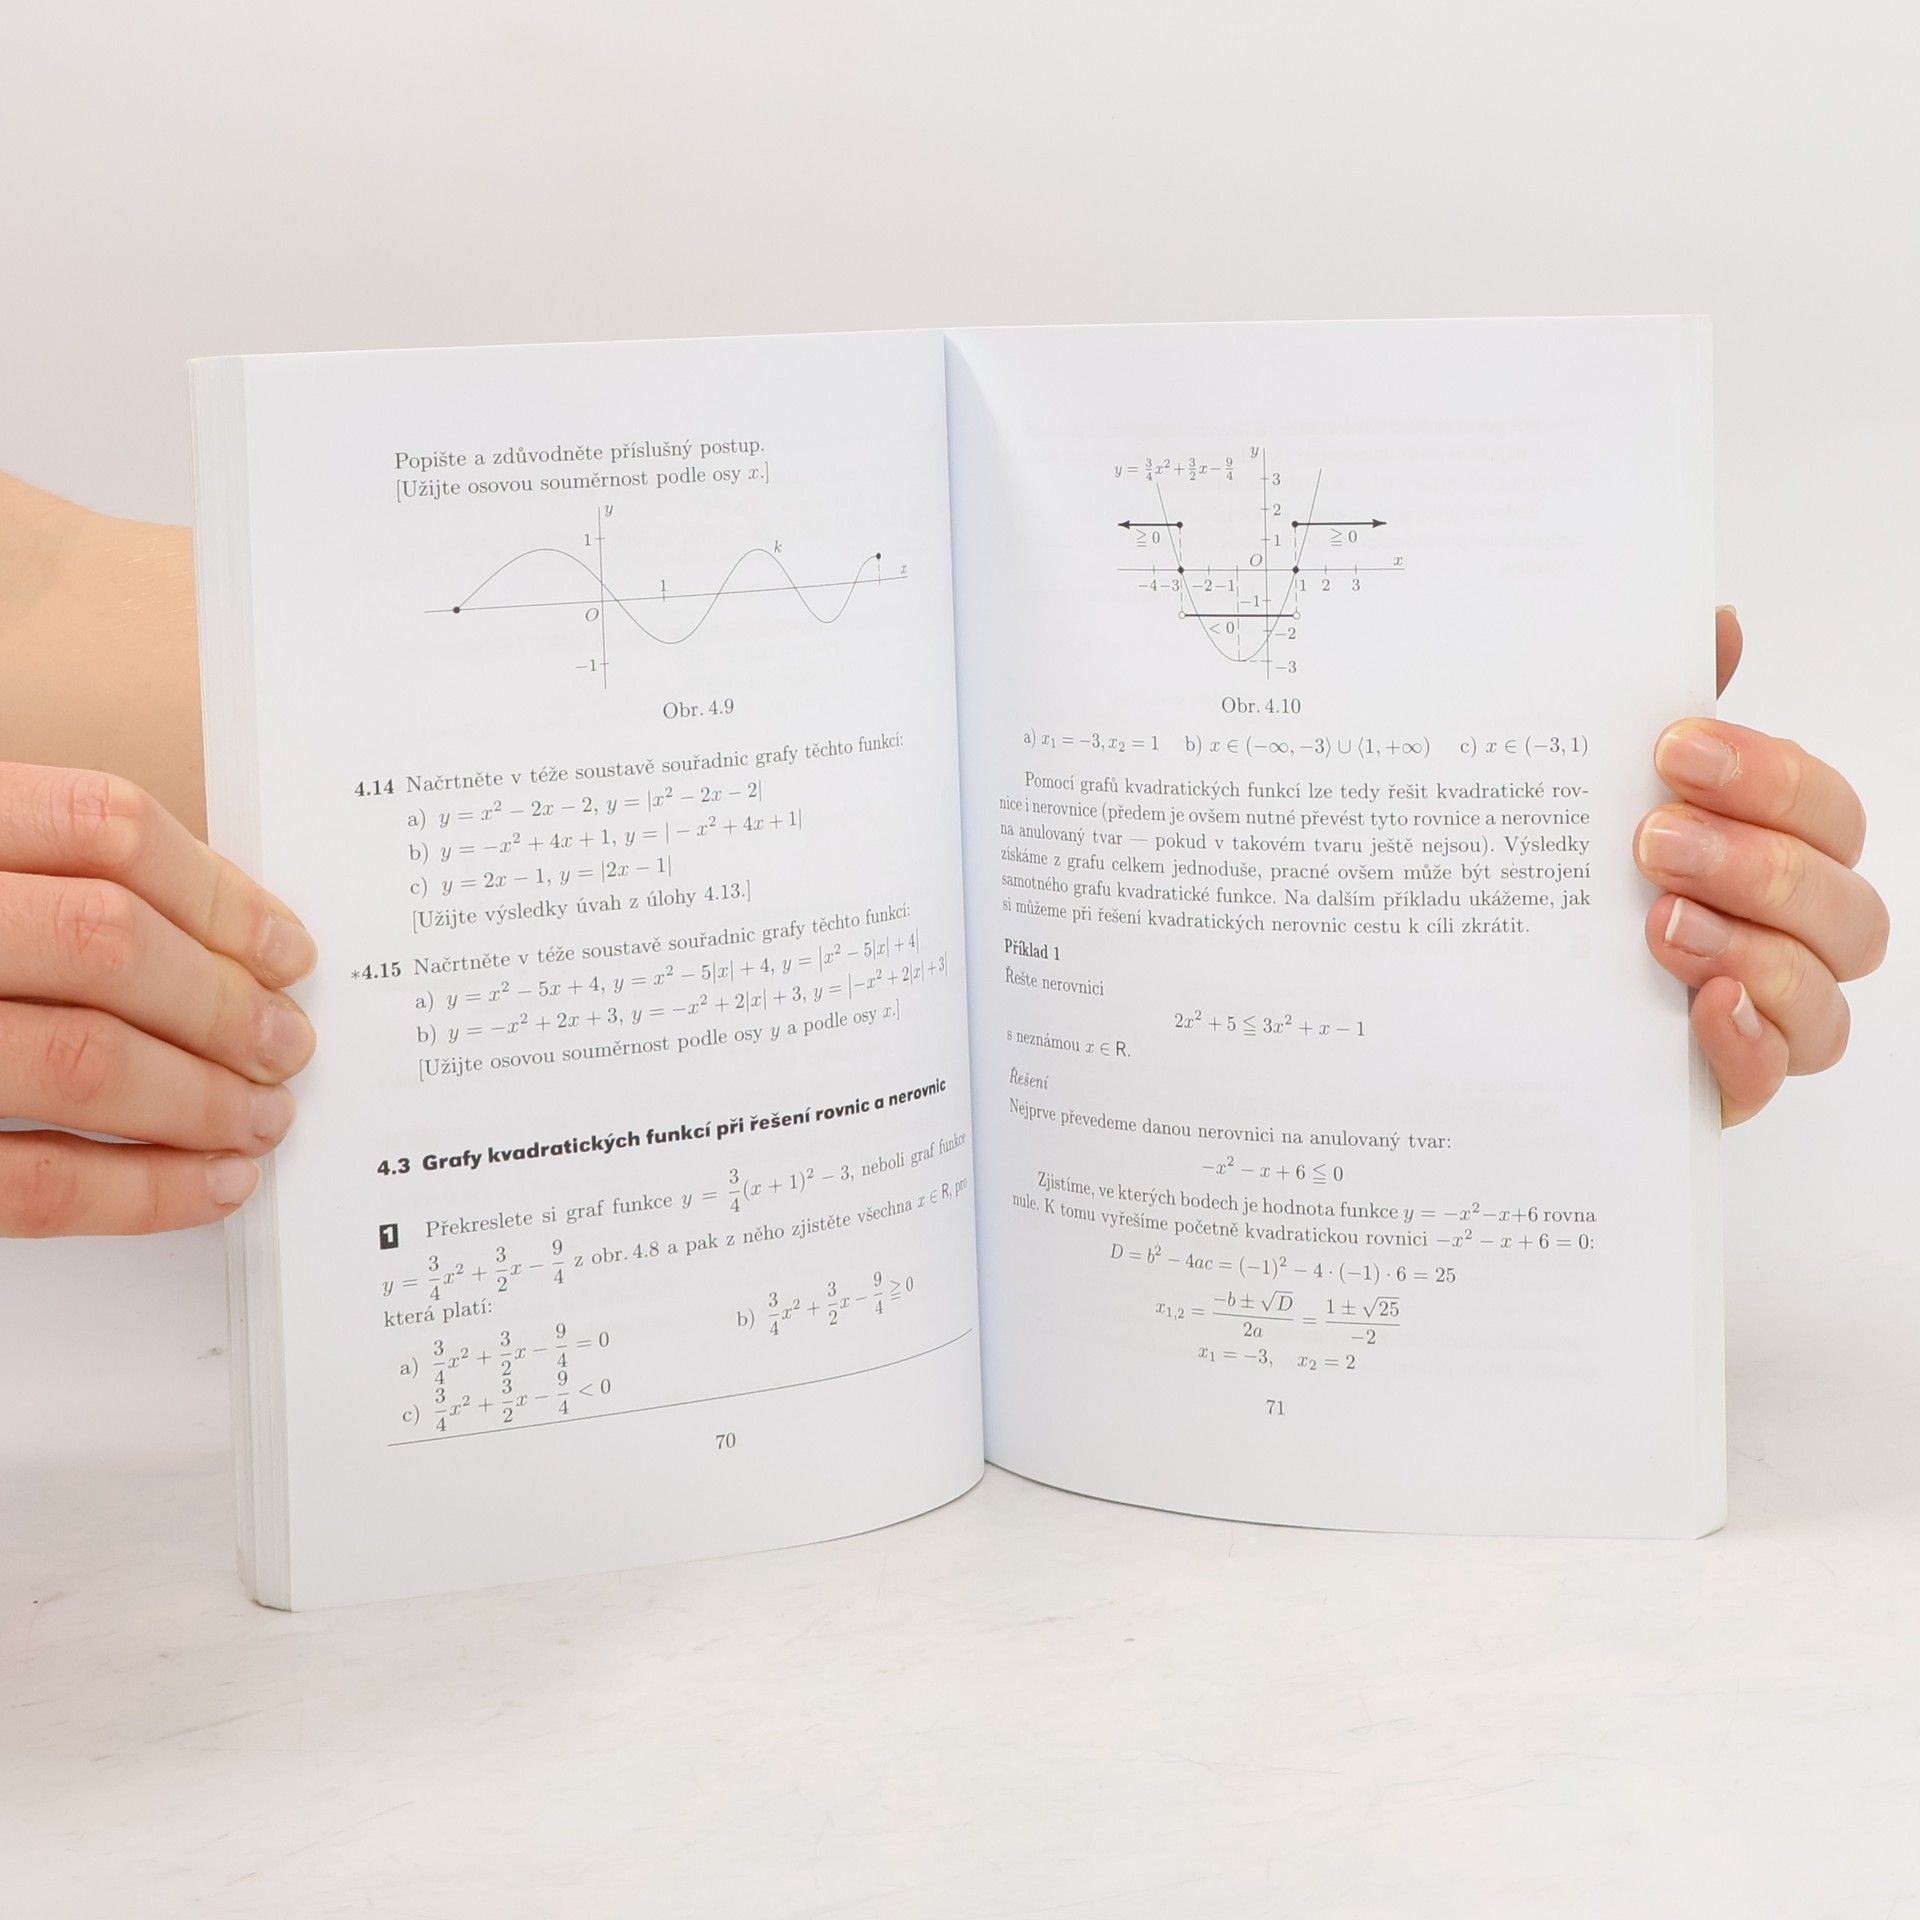 Popište a zdůvodněte příslušný postup.
[Užijte osovou souměrnost podle osy x.]
y
1
k
1
x
O
−1
Obr. 4.9
4.14 Načrtněte v téže soustavě souřadnic grafy těchto funkcí:
a) y = x² − 2x − 2, y = |x² − 2x − 2|
b) y = −x² + 4x + 1, y = | − x² + 4x + 1|
c) y = 2x − 1, y = |2x − 1|
[Užijte výsledky úvah z úlohy 4.13.]
*4.15 Načrtněte v téže soustavě souřadnic grafy těchto funkcí:
a) y = x² − 5x + 4, y = x² − 5|x| + 4, y = |x² − 5|x| + 4|
b) y = −x² + 2x + 3, y = −x² + 2|x| + 3, y = |−x² + 2|x| + 3|
[Užijte osovou souměrnost podle osy y a podle osy x.]
4.3 Grafy kvadratických funkcí při řešení rovnic a nerovnic
1 Překreslete si graf funkce y = 3/4(x + 1)² − 3, neboli graf funkce
y = 3/4x² + 3/2x − 9/4 z obr. 4.8 a pak z něho zjistěte všechna x ∈ R, pro
která platí:
a) 3/4x² + 3/2x − 9/4 = 0 b) 3/4x² + 3/2x − 9/4 ≧ 0
c) 3/4x² + 3/2x − 9/4 < 0
70
y = 3/4x² + 3/2x − 9/4
y
3
2
1
≧ 0
≧ 0
O
x
−4 −3 −2 −1 1 2 3
−1
< 0
−2
−3
Obr. 4.10
a) x₁ = −3, x₂ = 1 b) x ∈ (−∞, −3⟩ ∪ ⟨1, +∞) c) x ∈ (−3, 1)
Pomocí grafů kvadratických funkcí lze tedy řešit kvadratické rov-
nice i nerovnice (předem je ovšem nutné převést tyto rovnice a nerovnice
na anulovaný tvar — pokud v takovém tvaru ještě nejsou). Výsledky
získáme z grafu celkem jednoduše, pracné ovšem může být sestrojení
samotného grafu kvadratické funkce. Na dalším příkladu ukážeme, jak
si můžeme při řešení kvadratických nerovnic cestu k cíli zkrátit.
Příklad 1
Řešte nerovnici
2x² + 5 ≦ 3x² + x − 1
s neznámou x ∈ R.
Řešení
Nejprve převedeme danou nerovnici na anulovaný tvar:
−x² − x + 6 ≦ 0
Zjistíme, ve kterých bodech je hodnota funkce y = −x²−x+6 rovna
nule. K tomu vyřešíme početně kvadratickou rovnici −x² − x + 6 = 0:
D = b² − 4ac = (−1)² − 4 · (−1) · 6 = 25
x₁,₂ = (−b ± √D)/2a = (1 ± √25)/−2
x₁ = −3, x₂ = 2
71